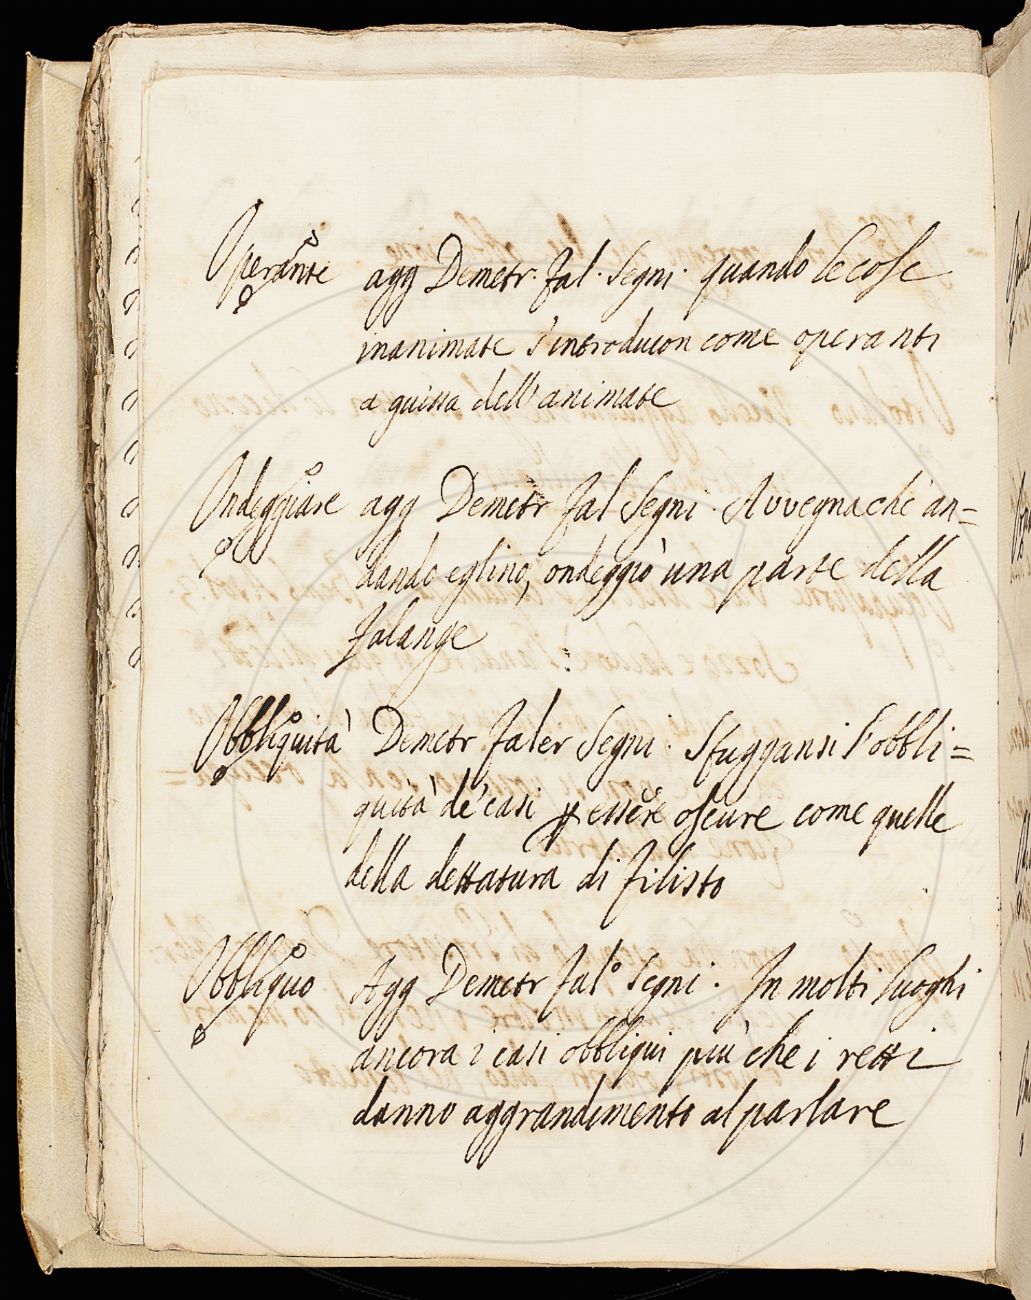 Operante agg Demetr. Fal. Segni. quando le cose
inanimate s'introducon come operanti
a guisa dell'animate
Ondeggiare agg Demetr Fal Segni. Avvegnache an=
dando eglino, ondeggiò una parte della
falange
Obbliquità Demetr Faler Segni. Sfuggansi l'obbli=
quità de' casi p essere oscure come quelle
della dettatura di Filisto
Obbliquo Agg Demetr Fal.º Segni. In molti luoghi
ancora i casi obbliqui più che i retti
danno aggrandimento al parlare